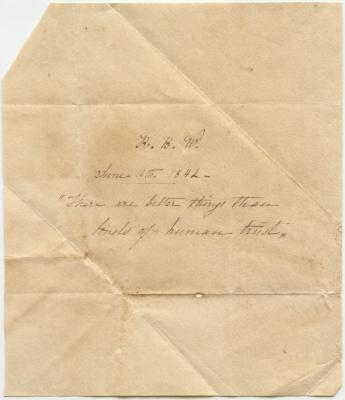 R. B. W.
June 11th. 1842 -
"There are better things than
bonds of human trust.